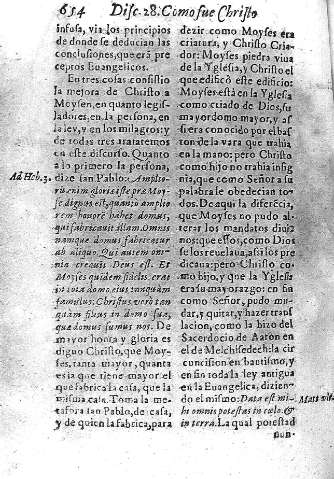 654 Disc. 28. Como fue Christo
infusa, vìa los principios
de donde se deducian las
conclusiones, que erã pre
ceptos Euangelicos.
En tres cosas consistio
la mejora de Christo a
Moysen, en quanto legis-
ladores, en la persona, en
la ley, y en los milagros: y
de todas tres trataremos
en este discurso. Quanto
a lo primero la persona,
Ad Heb. 3.
dize san Pablo: Amplio-
ris enim gloriæ iste præ Moy-
se dignus est, quanto amplio
rem honorẽ habet domus,
qui fabricauit illam. Omnis
namque domus fabricatur
ab aliquo. Qui autem om-
nia creauit Deus est. Et
Moyses quidem fidelis erat
in tota domo eius tanquam
famulus. Christus verò tan
quàm filius in domo sua,
que domus sumus nos. De
mayor honra y gloria es
digno Christo, que Moy-
ses, tanta mayor, quanta
es la que tiene mayor el
que fabrica la casa, que la
misma casa. Toma la me-
tafora san Pablo, de casa,
y de quien la fabrica, para
dezir como Moyses era
criatura, y Christo Cria-
dor: Moyses piedra viua
de la Yglesia, y Christo el
que edificò este edificio:
Moyses està en la Yglesia
como criado de Dios, su
mayordomo mayor, y as-
si era conocido por el bas
tòn de la vara que trahìa
en la mano: pero Christo
como hijo no trahìa insig
nia, que como Señor a su
palabra le obedecian to-
dos. De aqui la diferẽcia,
que Moyses no pudo al-
terar los mandatos diui-
nos: que essos, como Dios
se los reuelaua, assi los pre
dicaua: pero Christo co-
mo hijo, y que la Yglesia
era su mayorazgo: en fin
como Señor, pudo mu-
dar, y quitar, y hazer trans
lacion, como la hizo del
Sacerdocio de Aaròn en
el de Melchisedech: la cir
cuncision en bautismo, y
en fin toda la ley antigua
en la Euangelica, dizien-
do el mismo: Data est mi-
Matt. vlt.
hi omnis potestas in cœlo, &
in terra. La qual potestad
nun-